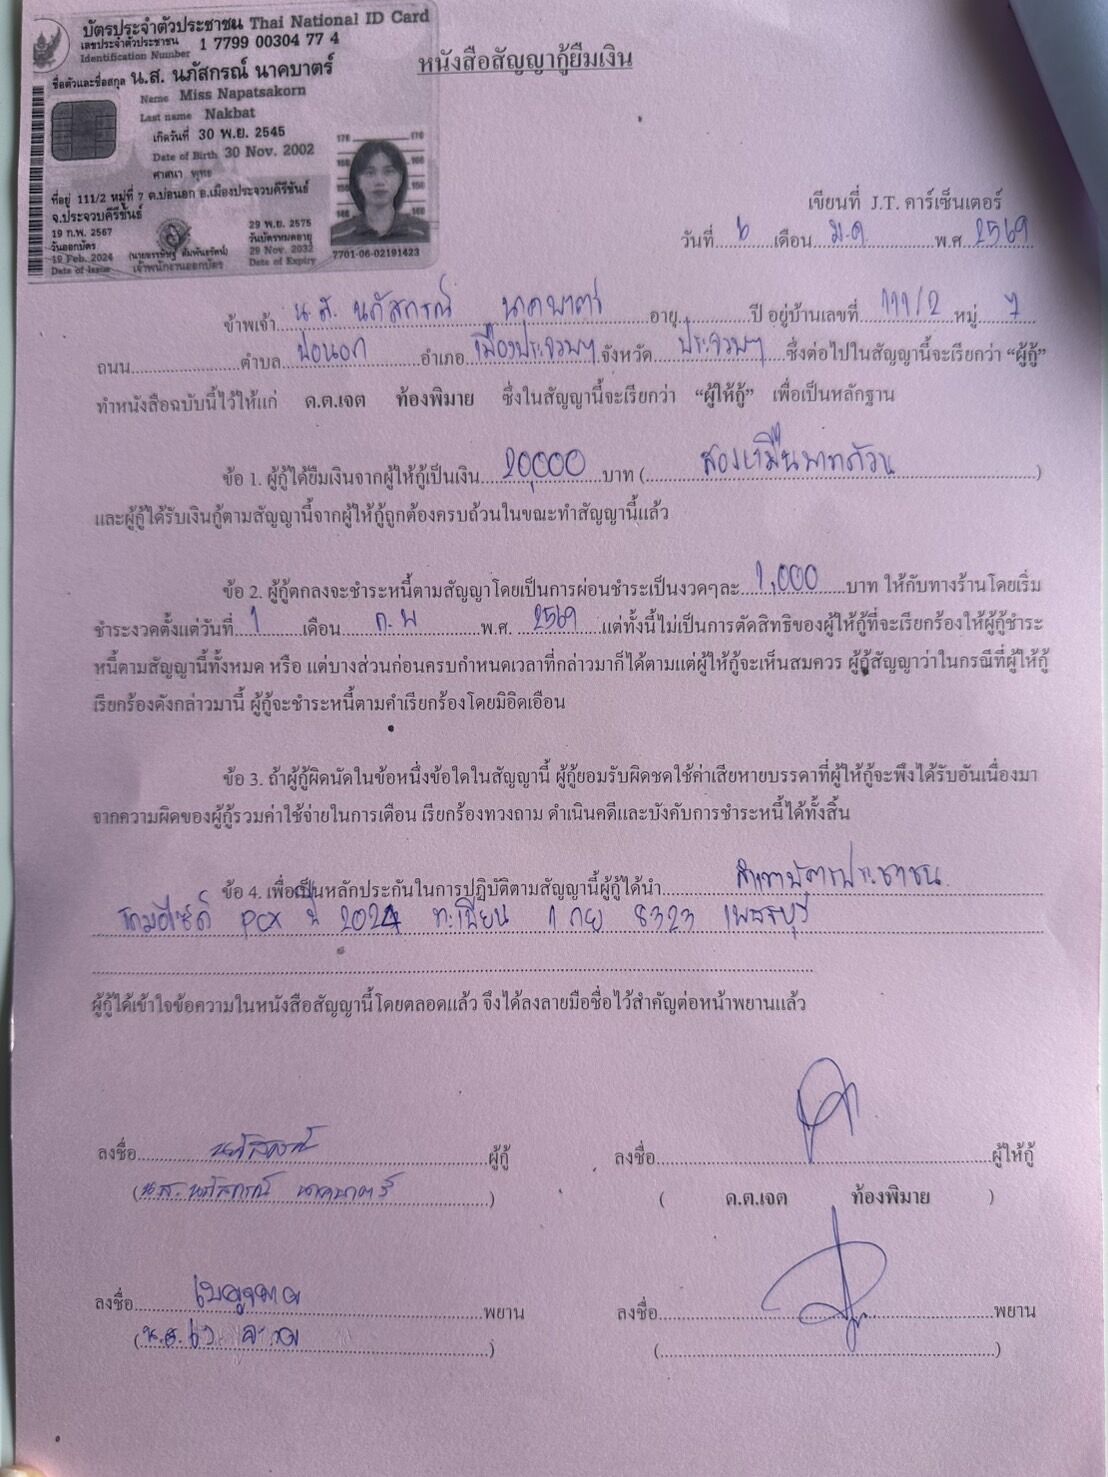 บัตรประจำตัวประชาชน Thai National ID Card
เลขประจำตัวประชาชน 1 7799 00304 77 4
Identification Number
ชื่อตัวและชื่อสกุล น.ส. นภัสกรณ์ นาคบาตร์
Name Miss Napatsakorn
Last name Nakbat
เกิดวันที่ 30 พ.ย. 2545
Date of Birth 30 Nov. 2002
ศาสนา พุทธ
ที่อยู่ 111/2 หมู่ที่ 7 ต.บ่อนอก อ.เมืองประจวบคีรีขันธ์
จ.ประจวบคีรีขันธ์
19 ก.พ. 2567
วันออกบัตร
19 Feb. 2024
Date of Issue
เจ้าพนักงานออกบัตร
29 พ.ย. 2575
วันบัตรหมดอายุ
29 Nov. 2032
Date of Expiry
7701-06-02191423
หนังสือสัญญากู้ยืมเงิน
เขียนที่ J.T. คาร์เซ็นเตอร์
วันที่ 6 เดือน ม.ค. พ.ศ 2569
ข้าพเจ้า น.ส. นภัสกรณ์ นาคบาตร์ อายุ ปี อยู่บ้านเลขที่ 111/2 หมู่ 7
ถนน ตำบล บ่อนอก อำเภอ เมืองประจวบฯ จังหวัด ประจวบฯ ซึ่งต่อไปในสัญญานี้จะเรียกว่า “ผู้กู้”
ทำหนังสือฉบับนี้ไว้ให้แก่ ด.ต.เจต ท้องพิมาย ซึ่งในสัญญานี้จะเรียกว่า “ผู้ให้กู้” เพื่อเป็นหลักฐาน
ข้อ 1. ผู้กู้ได้ยืมเงินจากผู้ให้กู้เป็นเงิน 20,000 บาท ( สองหมื่นบาทถ้วน )
และผู้กู้ได้รับเงินกู้ตามสัญญานี้จากผู้ให้กู้ถูกต้องครบถ้วนในขณะทำสัญญานี้แล้ว
ข้อ 2. ผู้กู้ตกลงจะชำระหนี้ตามสัญญาโดยเป็นการผ่อนชำระเป็นงวดๆละ 1,000 บาท ให้กับทางร้านโดยเริ่ม
ชำระงวดตั้งแต่วันที่ 1 เดือน ก.พ พ.ศ. 2569 แต่ทั้งนี้ไม่เป็นการตัดสิทธิของผู้ให้กู้ที่จะเรียกร้องให้ผู้กู้ชำระ
หนี้ตามสัญญานี้ทั้งหมด หรือ แต่บางส่วนก่อนครบกำหนดเวลาที่กล่าวมาก็ได้ตามแต่ผู้ให้กู้จะเห็นสมควร ผู้กู้สัญญาว่าในกรณีที่ผู้ให้กู้
เรียกร้องดังกล่าวมานี้ ผู้กู้จะชำระหนี้ตามคำเรียกร้องโดยมิอิดเอือน
ข้อ 3. ถ้าผู้กู้ผิดนัดในข้อหนึ่งข้อใดในสัญญานี้ ผู้กู้ยอมรับผิดชดใช้ค่าเสียหายบรรดาที่ผู้ให้กู้จะพึงได้รับอันเนื่องมา
จากความผิดของผู้กู้รวมค่าใช้จ่ายในการเตือน เรียกร้องทวงถาม ดำเนินคดีและบังคับการชำระหนี้ได้ทั้งสิ้น
ข้อ 4. เพื่อเป็นหลักประกันในการปฏิบัติตามสัญญานี้ผู้กู้ได้นำ สำเนาบัตรประชาชน
รถมอไซด์ PCX ปี 2024 ทะเบียน 1 กย 8323 เพชรบุรี
ผู้กู้ได้เข้าใจข้อความในหนังสือสัญญานี้โดยตลอดแล้ว จึงได้ลงลายมือชื่อไว้สำคัญต่อหน้าพยานแล้ว
ลงชื่อ นภัสกรณ์ ผู้กู้ ลงชื่อ ผู้ให้กู้
(น.ส. นภัสกรณ์ นาคบาตร์) ( ด.ต.เจต ท้องพิมาย )
ลงชื่อ พยาน ลงชื่อ พยาน